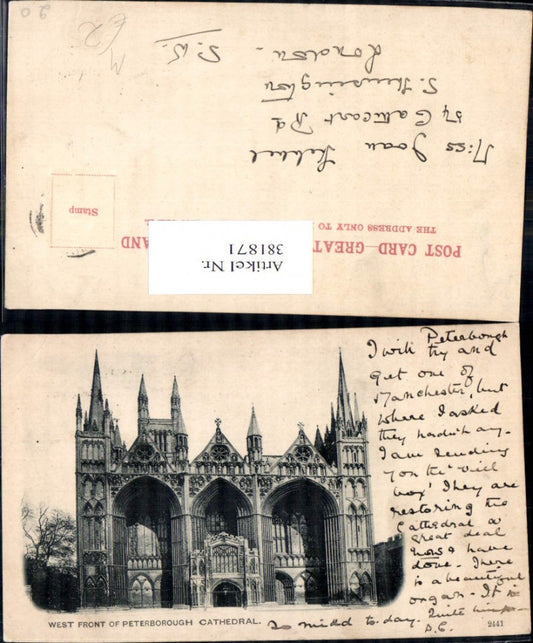 20
M
£2
S. W.
London.
S. Kensington
54 Cathcart Rd
Miss Joan
Stamp
THE ADDRESS ONLY TO
POST CARD—GREAT
AND
Artikel Nr.
381871
Peterborough
I will try and
get one of
Manchester, but
where I asked
they hadn't any.
I am sending
you the
box' They are
restoring the
Cathedral a
great deal
now & have
done. There
is a beautiful
organ. It is
so mild to-day. Quite
WEST FRONT OF PETERBOROUGH CATHEDRAL.
2441